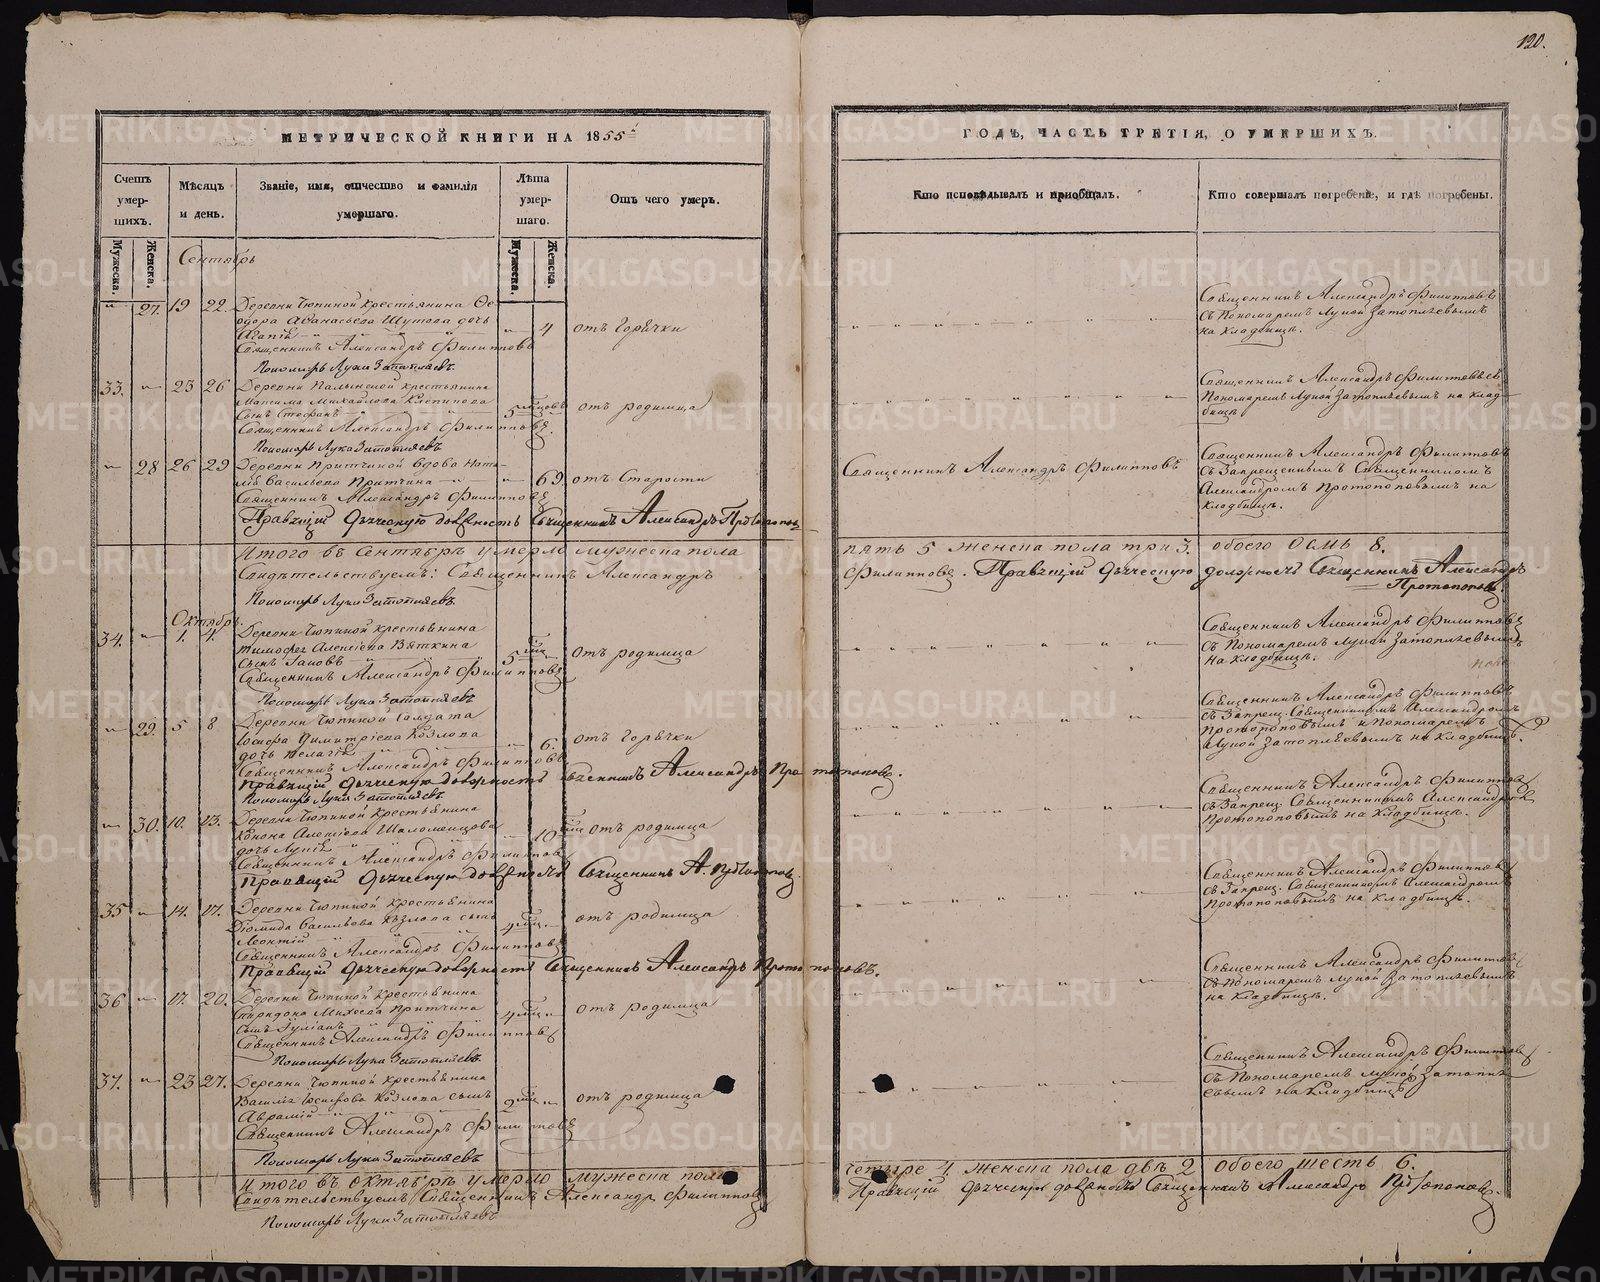 120.
МЕТРИЧЕСКОЙ КНИГИ НА 1855
ГОДЪ, ЧАСТЬ ТРЕТІЯ, О УМЕРШИХЪ.
Счетъ умер-шихъ.
Мужеска.
Женска.
Мѣсяцъ и день.
Званіе, имя, отчество и фамилія умершаго.
Лѣта умер-шаго.
Мужеска.
Женска.
Отъ чего умеръ.
Кто исповѣдывалъ и пріобщалъ.
Кто совершалъ погребеніе, и гдѣ погребены.
Сентябрь
27. 19 22. Деревни Чюпиной крестьянина Ѳе-
одора Аѳанасьева Шутова дочь
Агапія 4 отъ Горячки
Священникъ Александръ Филипповъ
Пономарь Лука Затопляевъ
Священникъ Александръ Филипповъ
съ Пономаремъ Лукой Затопляевымъ
на кладбищѣ.
33. 23 26 Деревни крестьянина
Максима Михайлова
сынъ Стефанъ 5 отъ родимца
Священникъ Александръ Филипповъ
Пономарь Лука Затопляевъ
Священникъ Александръ Филипповъ съ
Пономаремъ Лукой Затопляевымъ на клад-
бищѣ
28 26 29 Деревни Притчиной вдова Ната-
лія Васильева Притчина 69. отъ Старости
Священникъ Александръ Филипповъ
Правящій должность Священникъ Александръ Протопоповъ
Священникъ Александръ Филипповъ
Священникъ Александръ Филипповъ
съ Запрещеннымъ Священникомъ
Александромъ Протопоповымъ на
кладбищѣ.
Итого въ Сентябрѣ умерло мужеска пола
пять 5 женска пола три 3. обоего осмь 8.
Свидѣтельствуемъ: Священникъ Александръ
Филипповъ. Правящій должность Священникъ Александръ
Протопоповъ.
Пономарь Лука Затопляевъ.
Октябрь
34. 1. 4. Деревни Чюпиной крестьянина
Тимофея Алексіева Вяткина
сынъ Іаковъ 5 отъ родимца
Священникъ Александръ Филипповъ
Пономарь Лука Затопляевъ
Священникъ Александръ Филипповъ
съ Пономаремъ Лукой Затопляевымъ
на кладбищѣ.
29. 5 8 Деревни Чюпиной солдата
Іосифа Димитріева Козлова
дочь Пелагія 6. отъ Горячки
Священникъ Александръ Филипповъ
Правящій должность Священникъ Александръ Протопоповъ.
Пономарь Лука Затопляевъ
Священникъ Александръ Филипповъ
съ Запрещ. Священникомъ Александромъ
Протопоповымъ и Пономаремъ
Лукой Затопляевымъ на кладбищѣ.
30. 10. 13. Деревни Чюпиной крестьянина
Конона Алексіева Шаломенцова
дочь 10 отъ родимца
Священникъ Александръ Филипповъ
Правящій должность Священникъ А. Протопоповъ.
Священникъ Александръ Филипповъ
съ Запрещ. Священникомъ Александромъ
Протопоповымъ на кладбищѣ.
35 14. 17. Деревни Чюпиной крестьянина
Діомида Васильева Козлова сынъ
Леонтій 4 отъ родимца
Священникъ Александръ Филипповъ
Правящій должность Священникъ Александръ Протопоповъ.
Священникъ Александръ Филипповъ
съ Запрещ. Священникомъ Александромъ
Протопоповымъ на кладбищѣ.
36 17. 20. Деревни Чюпиной крестьянина
Михеева Притчина
сынъ Іуліанъ 4 отъ родимца
Священникъ Александръ Филипповъ
Пономарь Лука Затопляевъ
Священникъ Александръ Филипповъ
съ Пономаремъ Лукой Затопляевымъ
на кладбищѣ.
37. 23 27. Деревни Чюпиной крестьянина
Василія Іосифова Козлова сынъ
Аврамій 2 отъ родимца
Священникъ Александръ Филипповъ
Пономарь Лука Затопляевъ
Священникъ Александръ Филипповъ
съ Пономаремъ Лукой Затопля-
евымъ на кладбищѣ
Итого въ октябрѣ умерло мужеска пола
четыре 4 женска пола двѣ 2 обоего шесть 6.
Свидѣтельствуемъ Священникъ Александръ Филипповъ
Правящій должность Священникъ Александръ Протопоповъ.
Пономарь Лука Затопляевъ
METRIKI.GASO-URAL.RU